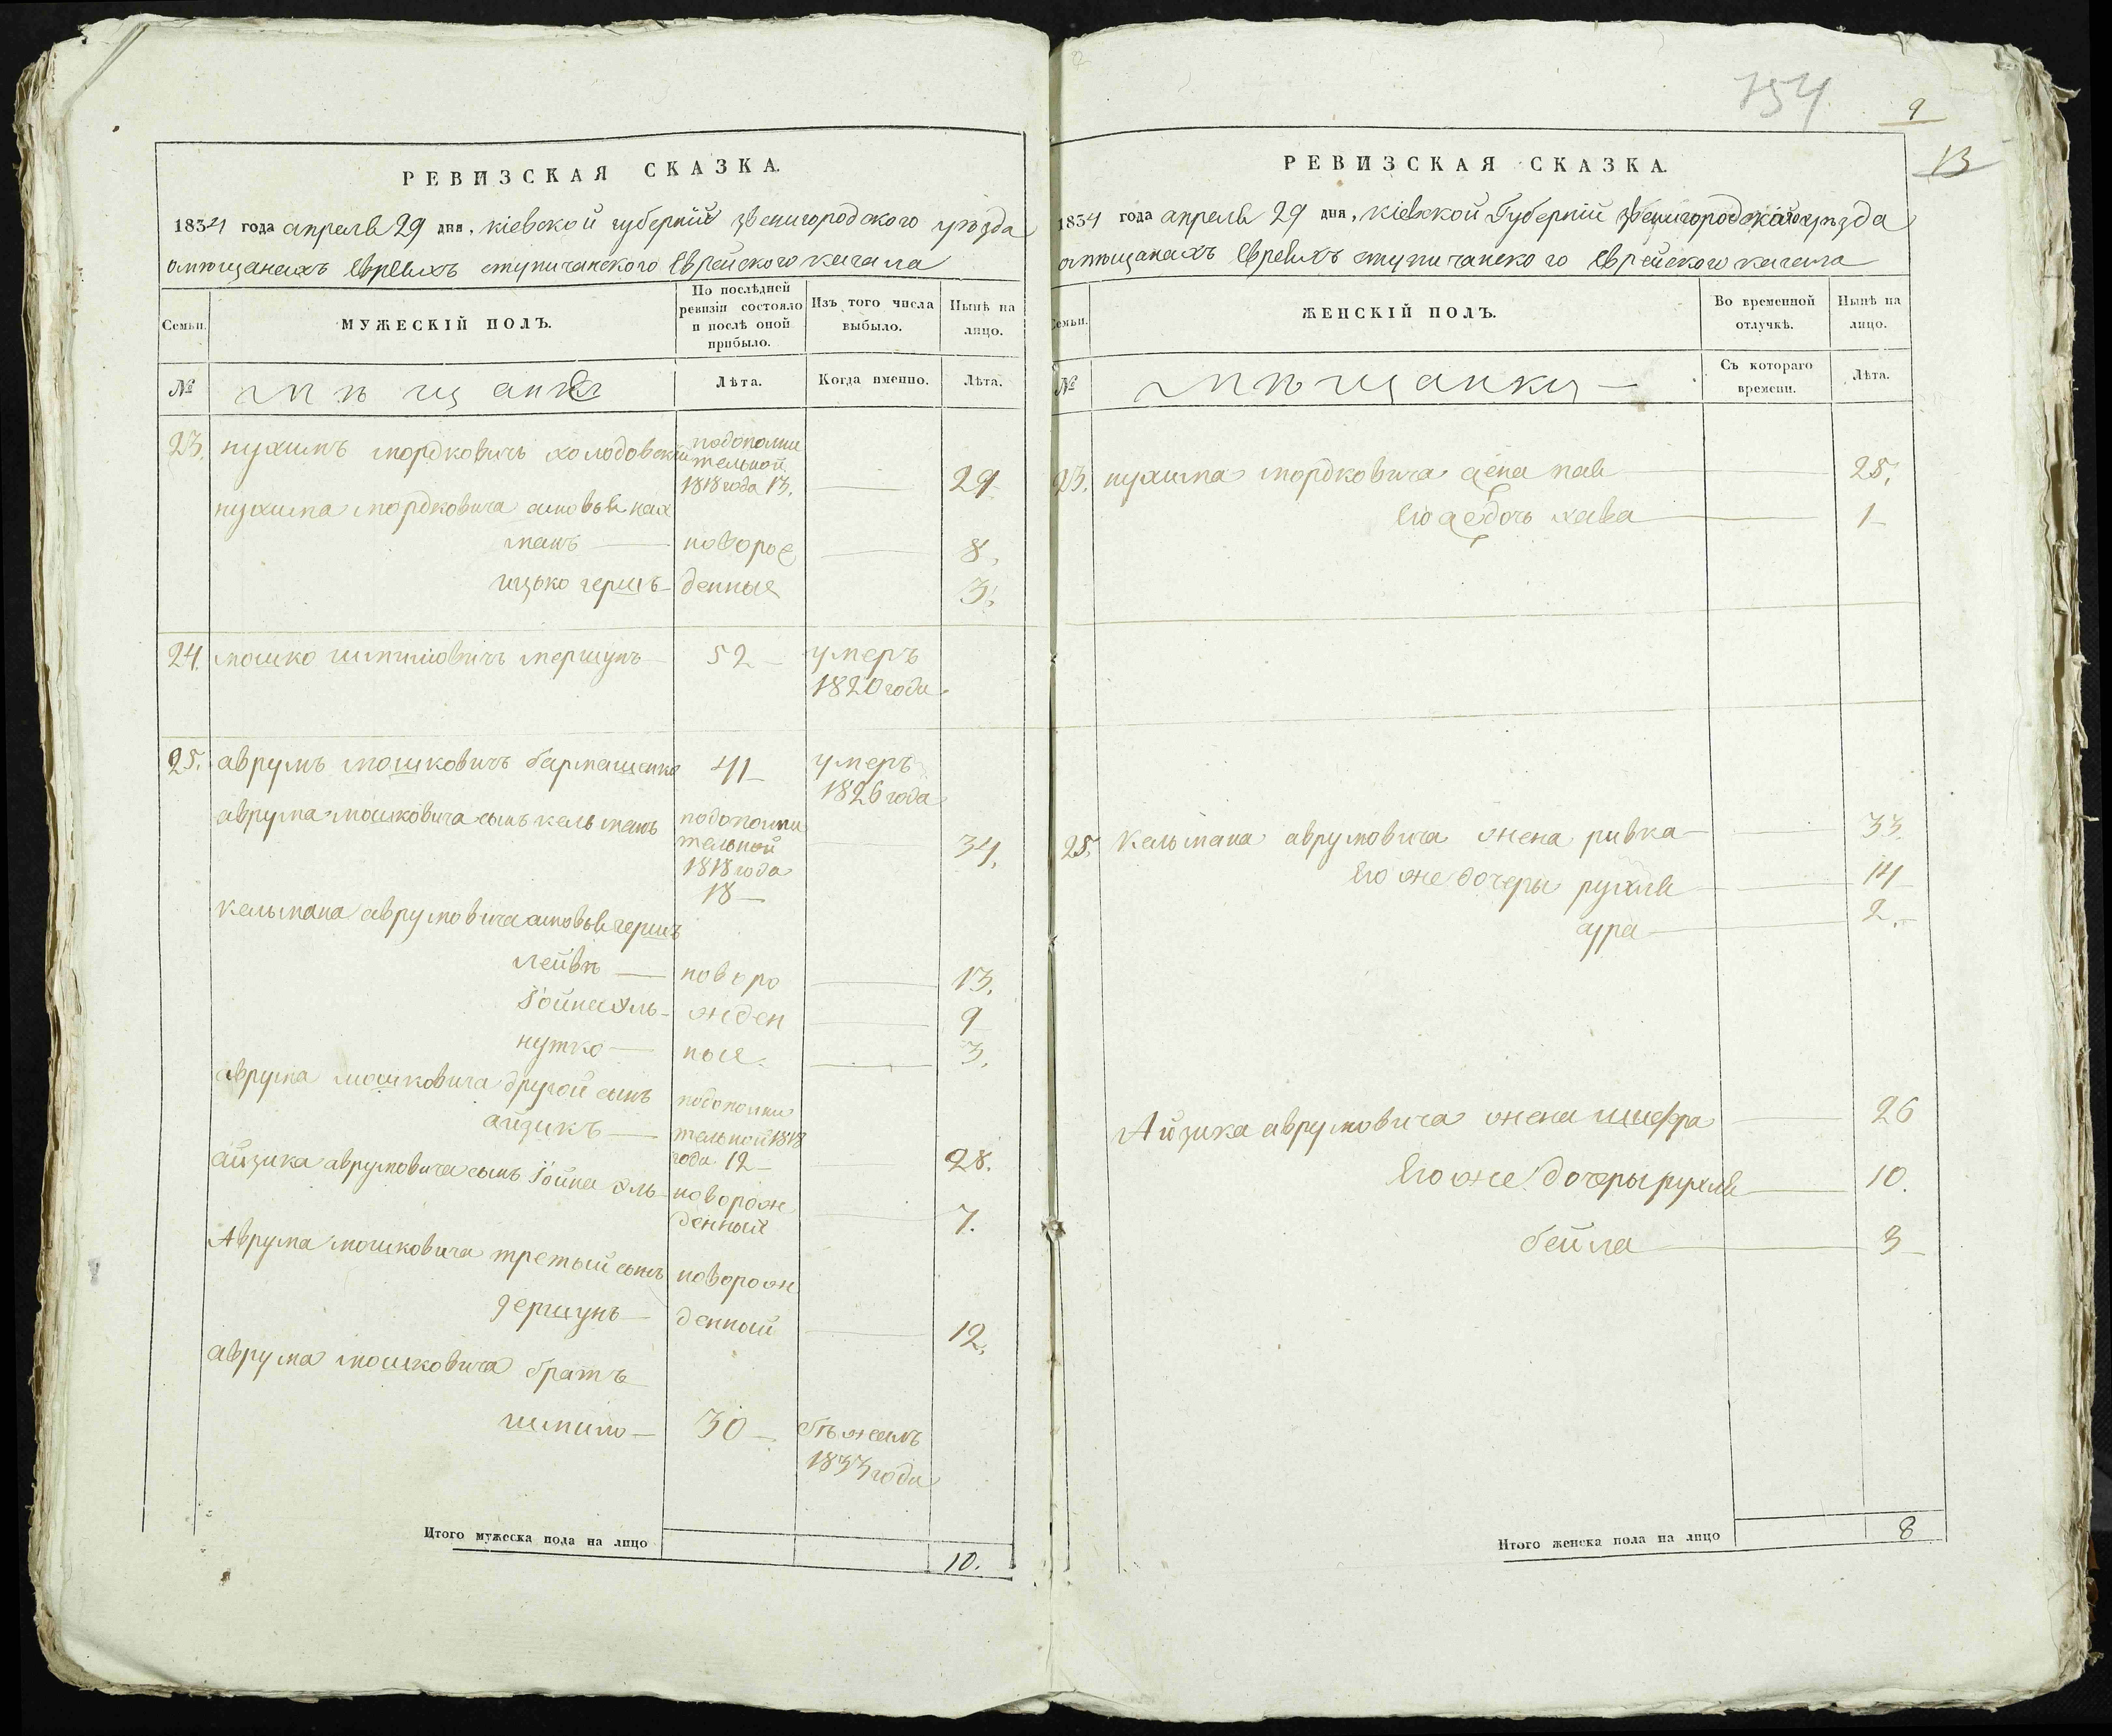 РЕВИЗСКАЯ СКАЗКА.
1834 года апреля 29 дня, кіевской губерніи звенигородского уѣзда
омѣщанахъ Евреяхъ ступичанского Еврейского кагала
Семьи.
МУЖЕСКІЙ ПОЛЪ.
По послѣдней ревизіи состояло и послѣ оной прибыло.
Изъ того числа выбыло.
Нынѣ на лицо.
№
мѣщане
Лѣта.
Когда именно.
Лѣта.
23. нухимъ мордковичъ холодовскій подополнительной 1818 года 13. 29
нухима мордковича сыновья нахманъ новорож 8.
ицько гершъ денныя 3.
24. мошко шмилиовичъ гершунъ 52 умеръ 1820 года
25. аврумъ мошковичъ бармашенко 41 умеръ 1826 года
аврума мошковича сынъ кельманъ подополнительной 1818 года 18 34.
кельмана аврумовича сыновья гершъ
лейвъ новоро 13.
Іойна жден 9
нутко ныя 3.
аврума мошковича другой сынъ
айзикъ подополнительной 1818 года 12 28.
айзика аврумовича сынъ Іойна новорожденный 7.
Аврума мошковича третый сынъ новорож
гершунъ денный 12.
аврума мошковича братъ
шмило 30 бѣжалъ 1833 года
Итого мужеска пола на лицо 10.
754
9
13
РЕВИЗСКАЯ СКАЗКА.
1834 года апреля 29 дня, кіевской Губерніи звенигородского уѣзда
омѣщанахъ Евреяхъ ступичанского Еврейского кагала
Семьи.
ЖЕНСКІЙ ПОЛЪ.
Во временной отлучкѣ.
Нынѣ на лицо.
№
мѣщанки
Съ котораго времени.
Лѣта.
23. нухима мордковича жена 25.
Его же дочь хава 1
25. Кельмана аврумовича жена ривка 33.
Его же дочеры рухля 14
2.
Айзика аврумовича жена шифра 26
Его же дочеры рухля 10.
бейла 3
Итого женска пола на лицо 8